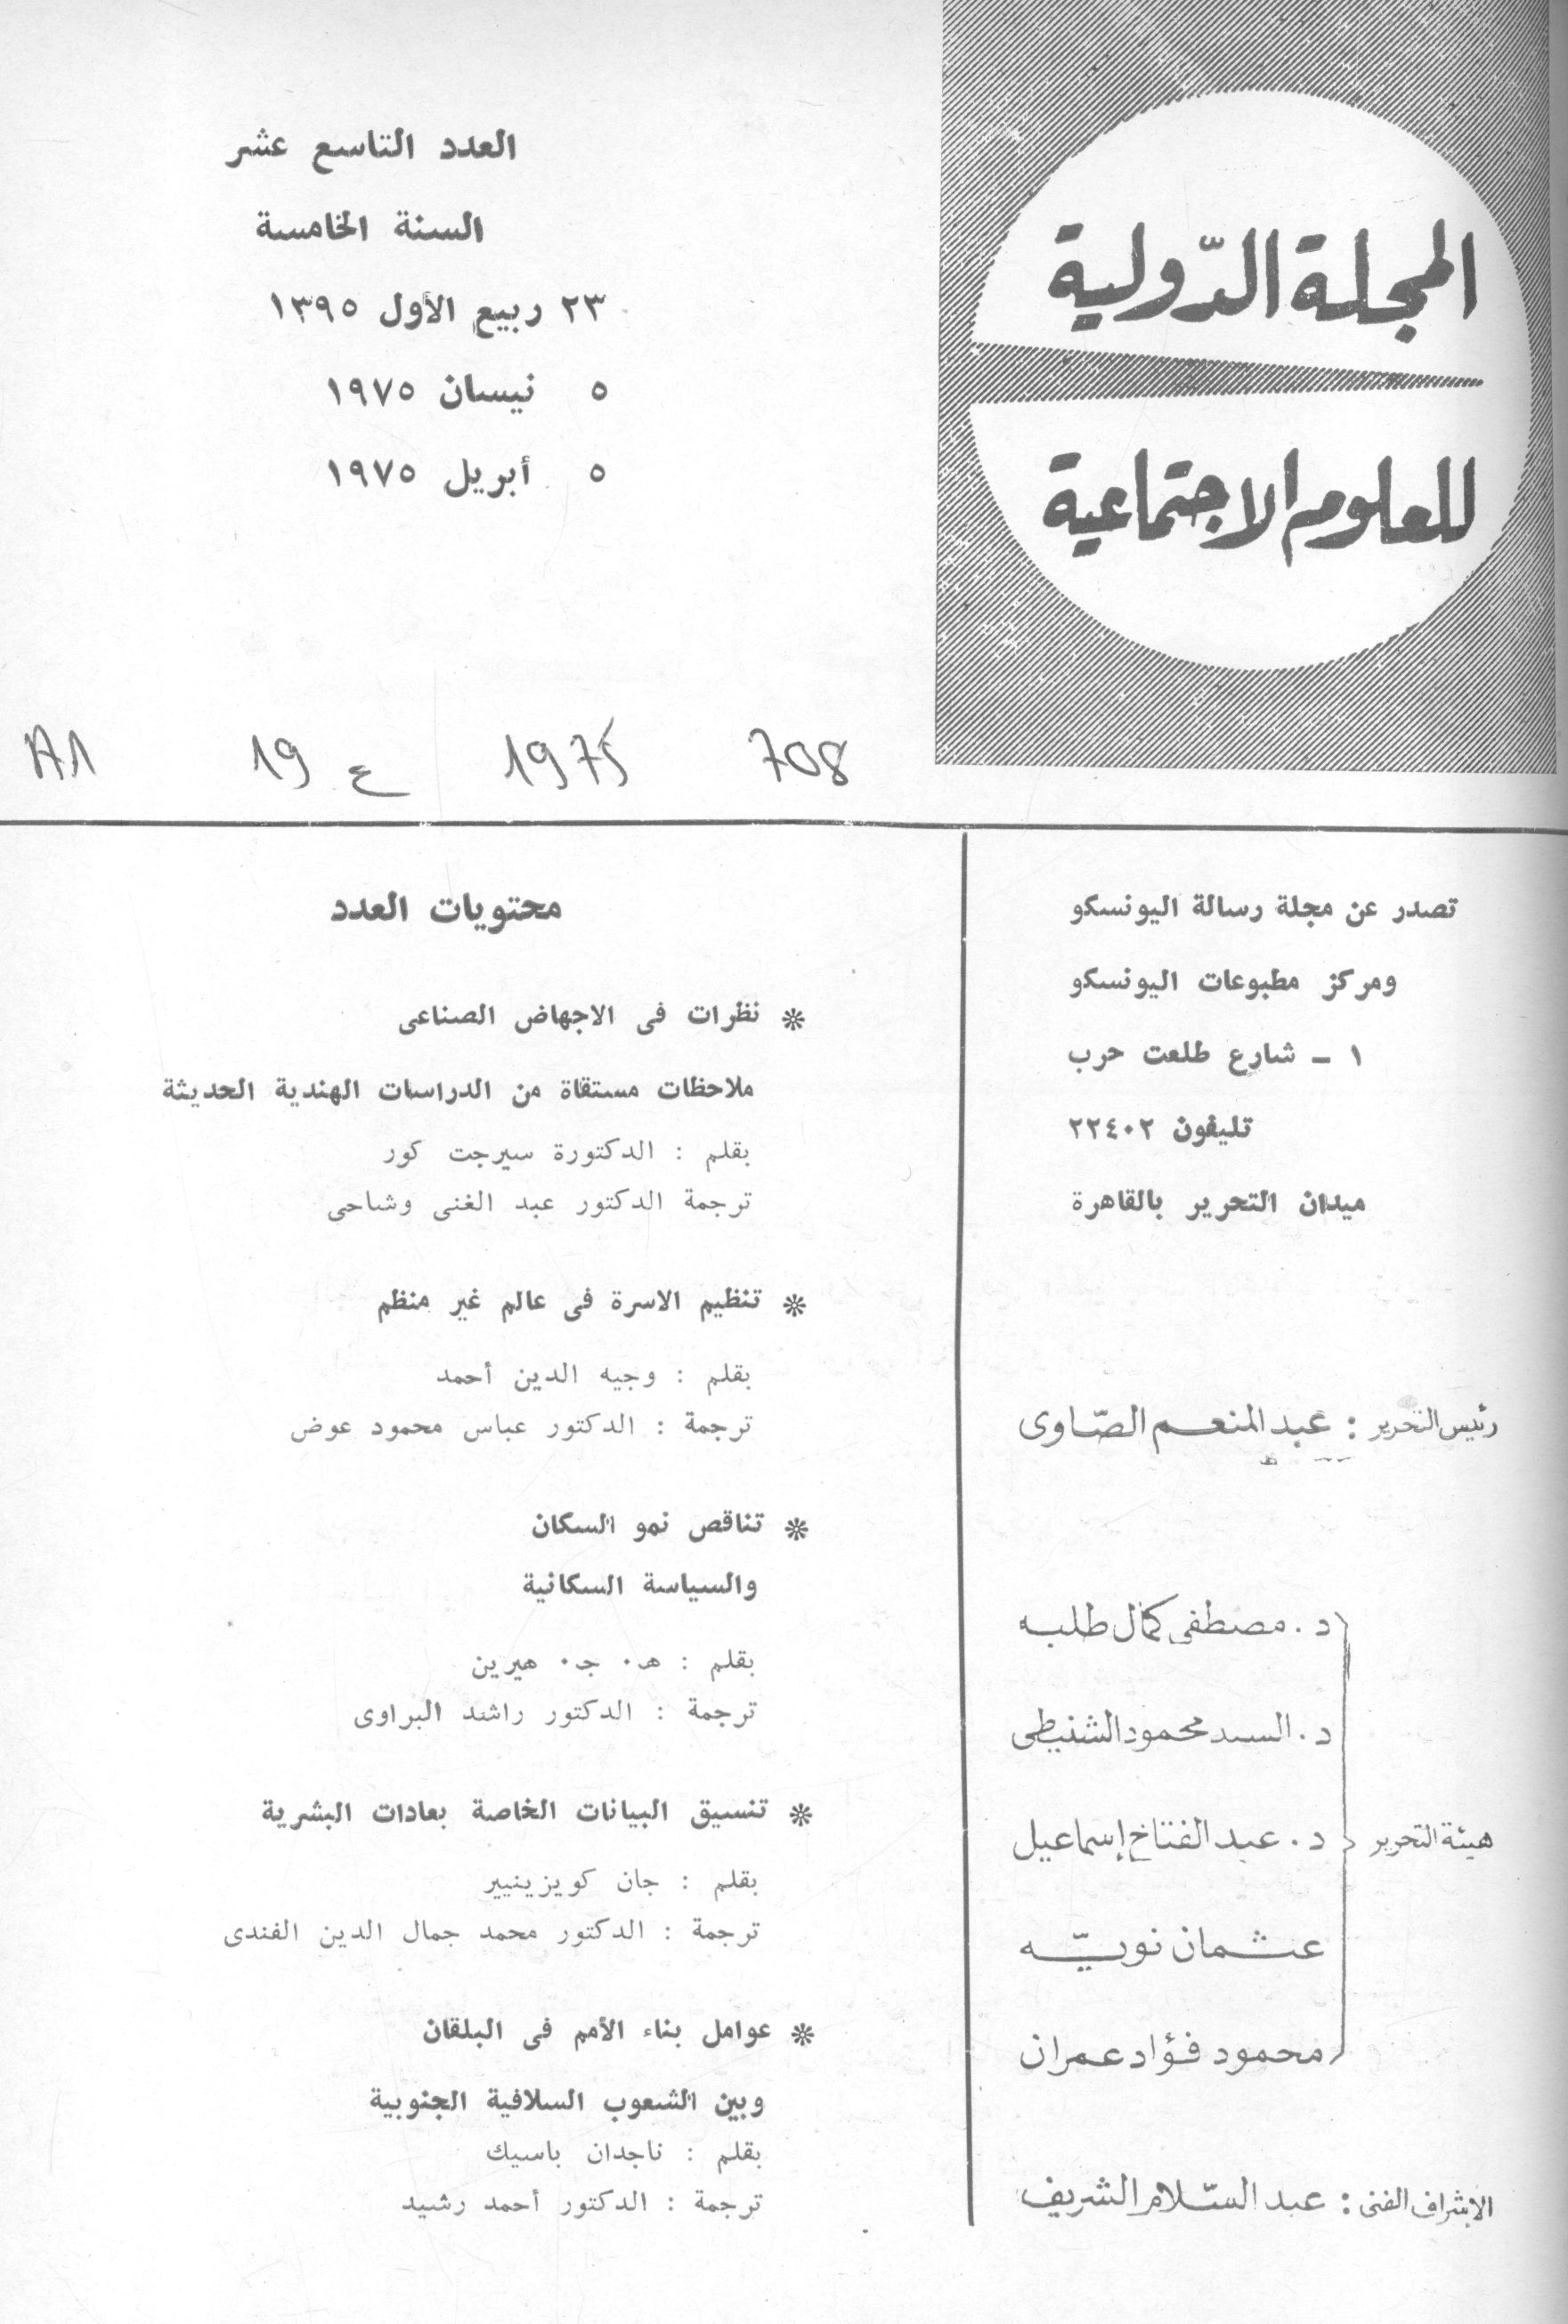 المجلة الدّولية
للعلوم الاجتماعية
العدد التاسع عشر
السنة الخامسة
٢٣ ربيع الأول ١٣٩٥
٥ نيسان ١٩٧٥
٥ أبريل ١٩٧٥
708 1975 ع 19 A1
تصدر عن مجلة رسالة اليونسكو
ومركز مطبوعات اليونسكو
١ ـ شارع طلعت حرب
تليفون ٢٢٤٠٢
ميدان التحرير بالقاهرة
رئيس التحرير : عبد المنعم الصّاوى
هيئة التحرير
د. مصطفى كمال طلبه
د. السيد محمود الشنيطى
د. عبد الفتاح إسماعيل
عثمان نويّه
محمود فؤاد عمران
الإشراف الفنى : عبد السّلام الشريف
محتويات العدد
* نظرات فى الاجهاض الصناعى
ملاحظات مستقاة من الدراسات الهندية الحديثة
بقلم : الدكتورة سيرجت كور
ترجمة الدكتور عبد الغنى وشاحى
* تنظيم الاسرة فى عالم غير منظم
بقلم : وجيه الدين أحمد
ترجمة : الدكتور عباس محمود عوض
* تناقص نمو السكان
والسياسة السكانية
بقلم : هـ٠ جـ٠ هيرين
ترجمة : الدكتور راشد البراوى
* تنسيق البيانات الخاصة بعادات البشرية
بقلم : جان كويزينيير
ترجمة : الدكتور محمد جمال الدين الفندى
* عوامل بناء الأمم فى البلقان
وبين الشعوب السلافية الجنوبية
بقلم : ناجدان باسيك
ترجمة : الدكتور أحمد رشيد